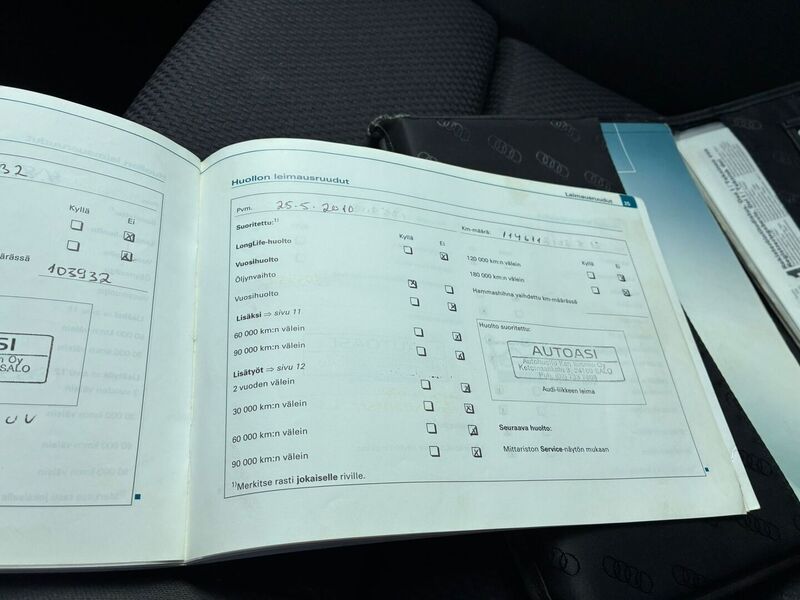 32
Kyllä
Ei
määrässä
103932
SI
n Oy
SALO
Huollon leimausruudut
Leimausruudut
Pvm. 25.5.2010
Km-määrä: 114611
Suoritettu:1)
Kyllä
Ei
LongLife-huolto
Vuosihuolto
Öljynvaihto
Vuosihuolto
Lisäksi ⇒ sivu 11
60 000 km:n välein
90 000 km:n välein
Lisätyöt ⇒ sivu 12
2 vuoden välein
30 000 km:n välein
60 000 km:n välein
90 000 km:n välein
1)Merkitse rasti jokaiselle riville.
120 000 km:n välein
180 000 km:n välein
Hammashihna vaihdettu km-määrässä
Huolto suoritettu:
AUTOASI
SALO
Audi-liikkeen leima
Seuraava huolto:
Mittariston Service-näytön mukaan